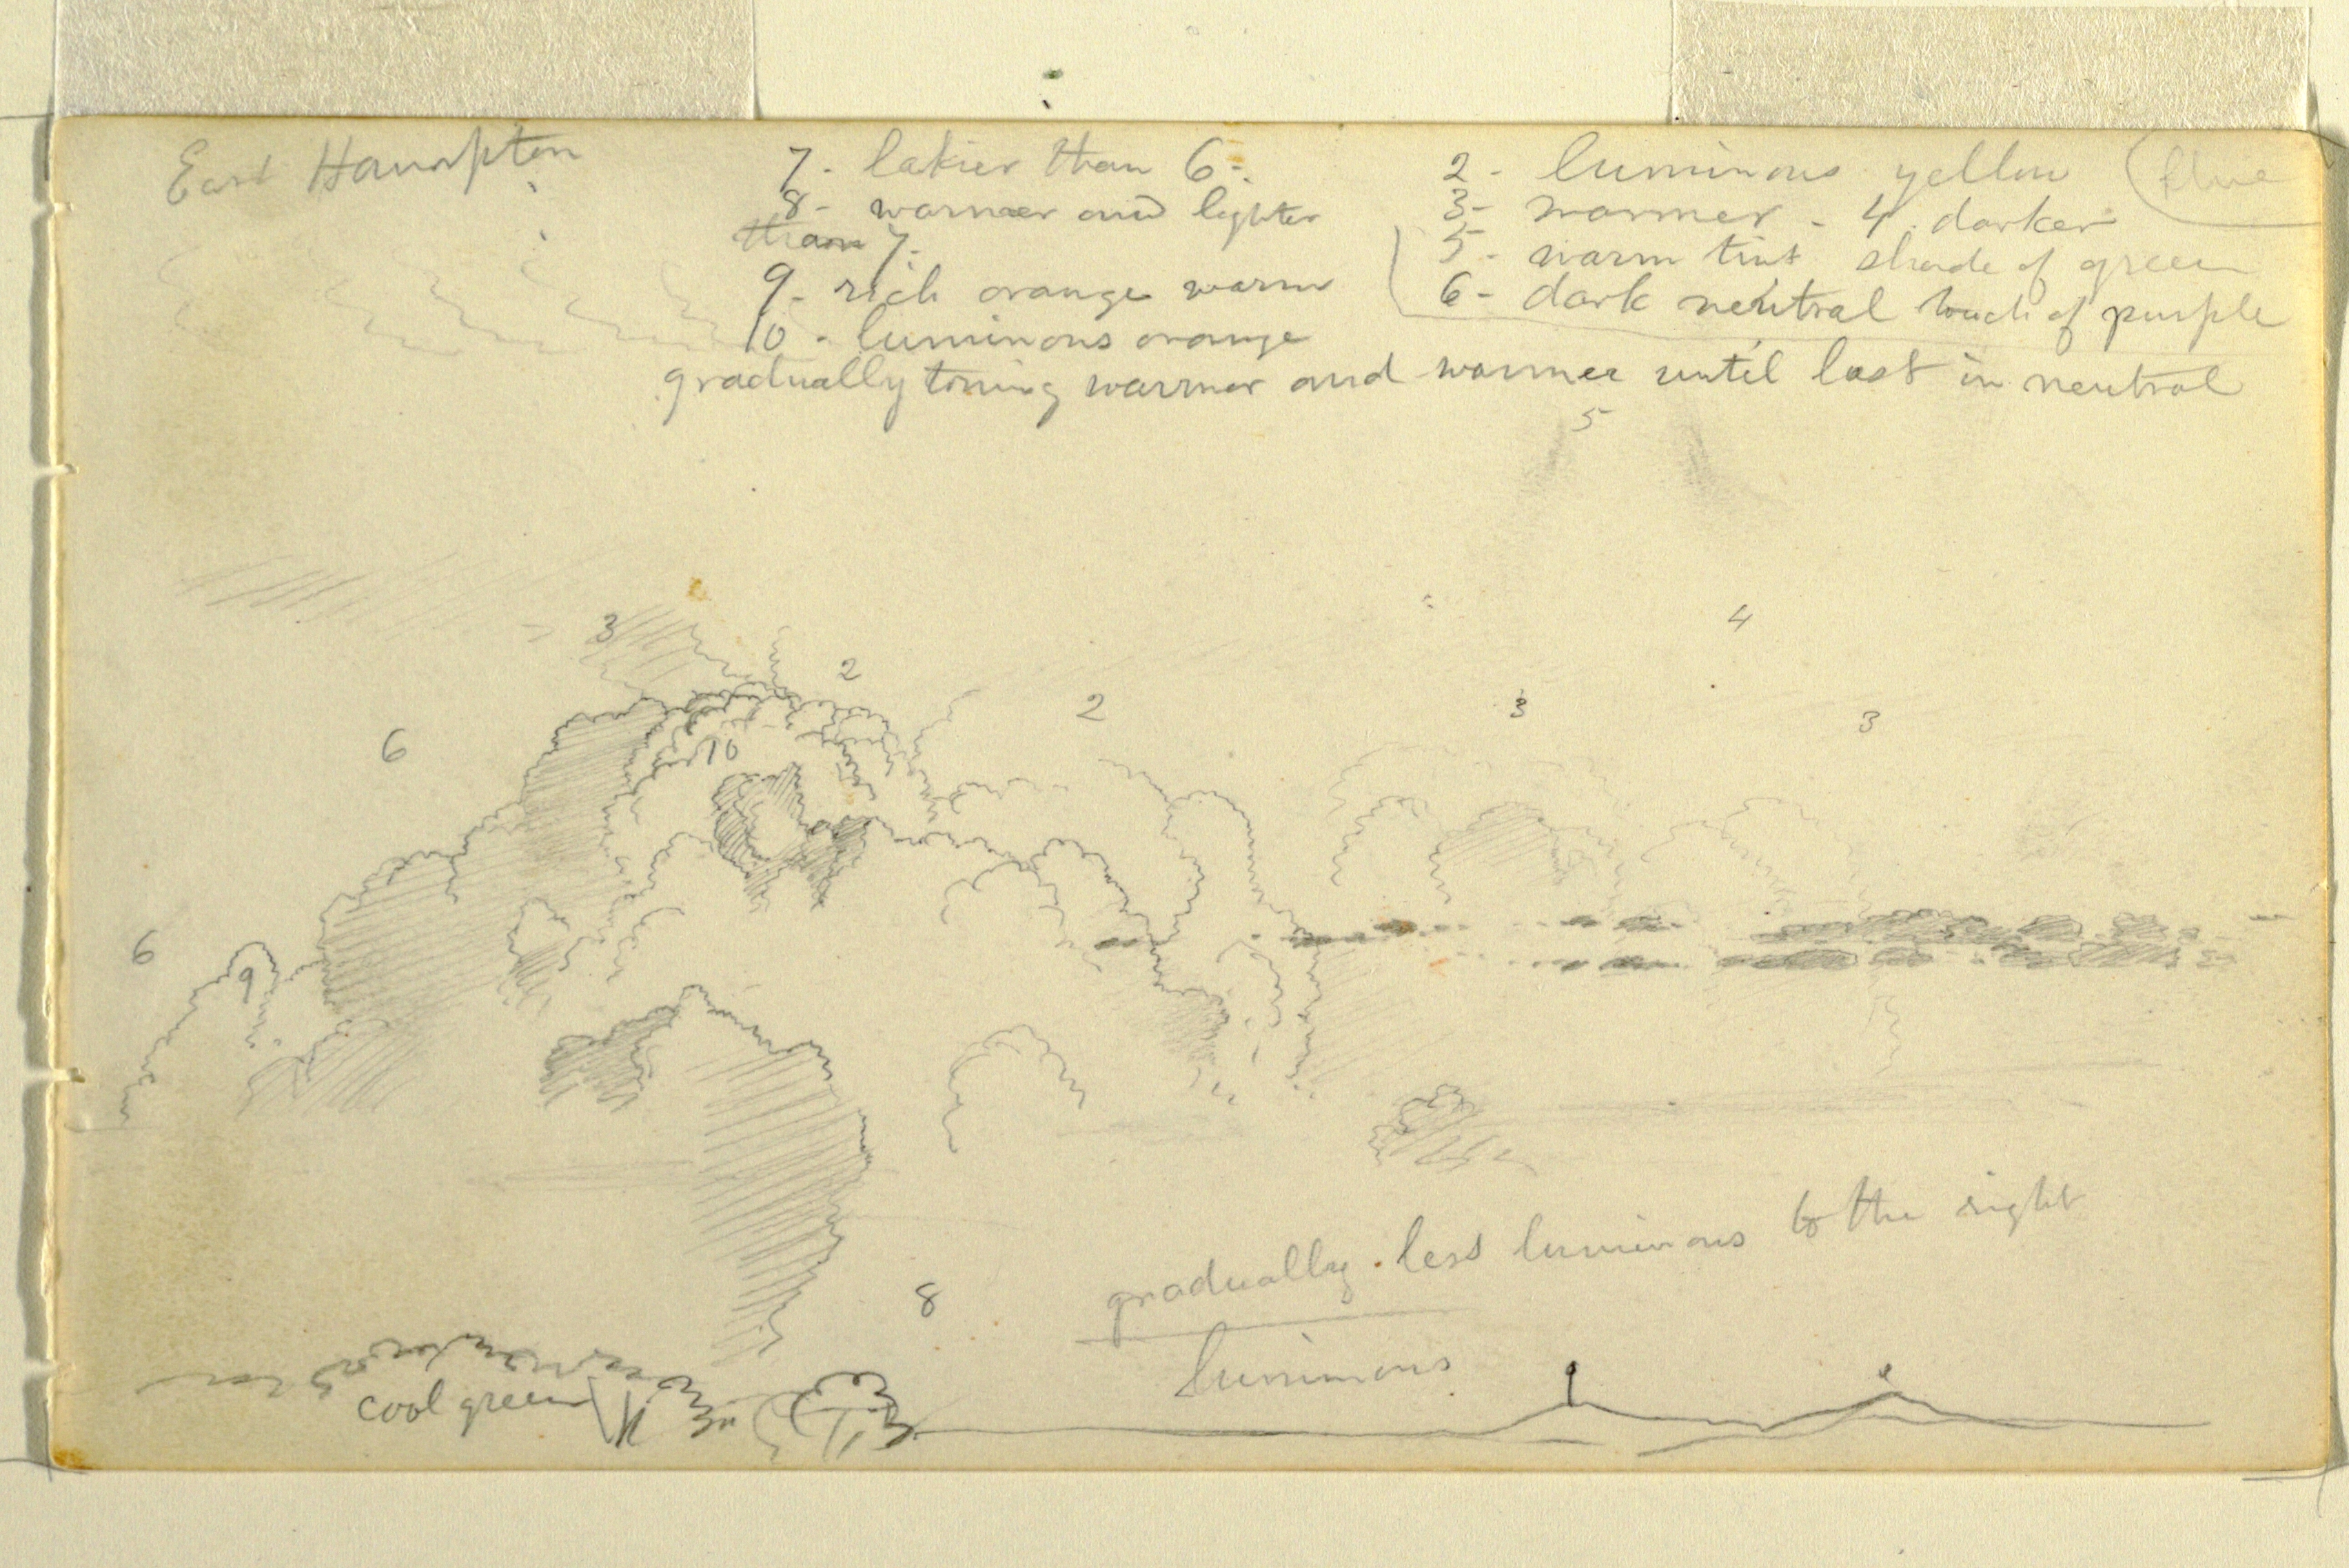 East Hampton
7 - lakier than 6 -
8 - warmer and lighter
than 7.
9 - rich orange warm
10 - luminous orange
gradually toning warmer and warmer until lost in neutral
2 - luminous yellow (blue
3 - warmer - 4. darker
5 - warm tint shade of green
6 - dark neutral touch of purple
5
3
4
2
2
3
3
6
10
6
9
gradually less luminous to the right
8
luminous
cool green